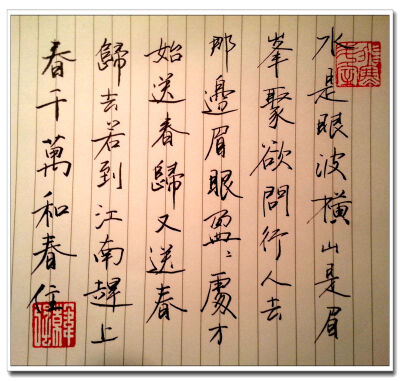 水是眼波橫山是眉
峯聚欲問行人去
那邊眉眼盈〻處才
始送春歸又送春
歸去若到江南趕上
春千萬和春住